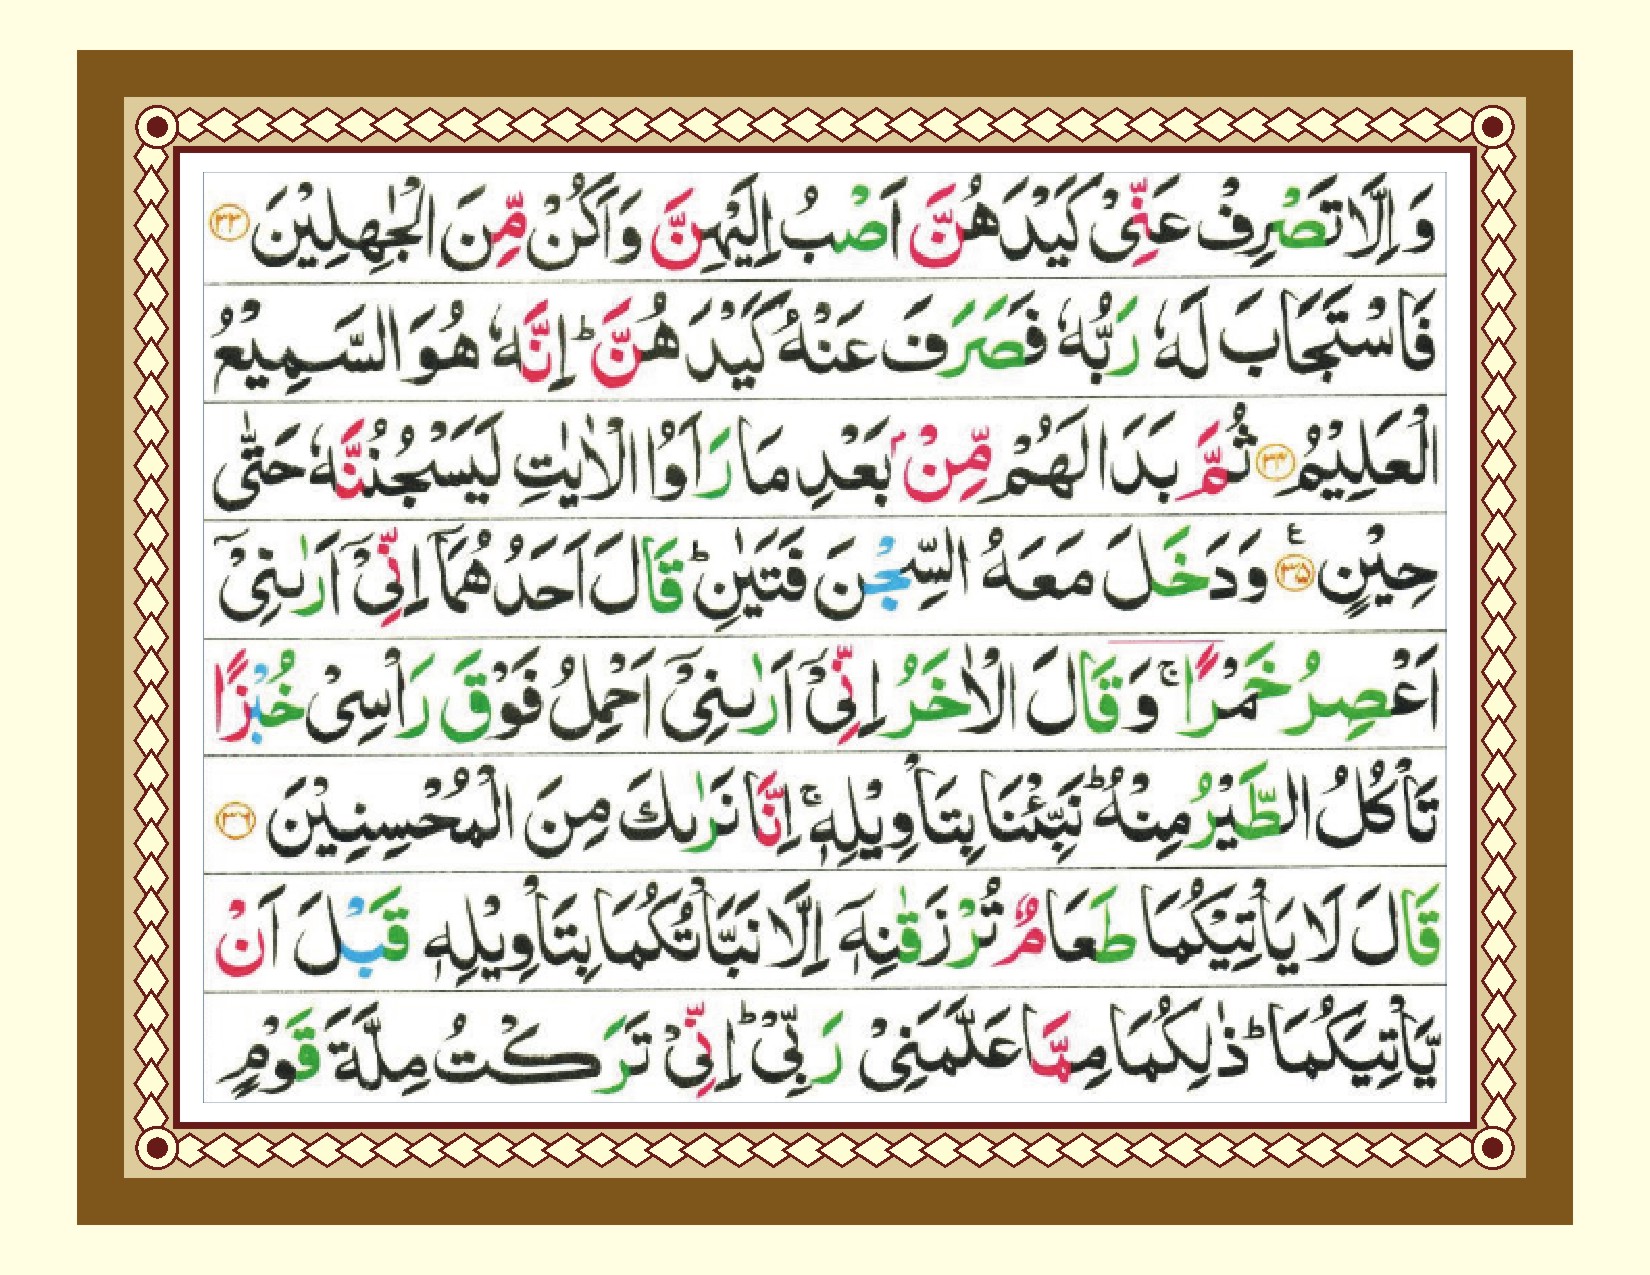 وَ اِلَّا تَصْرِفْ عَنِّیْ كَیْدَهُنَّ اَصْبُ اِلَیْهِنَّ وَ اَكُنْ مِّنَ الْجٰهِلِیْنَ ۝۳۳
فَاسْتَجَابَ لَهٗ رَبُّهٗ فَصَرَفَ عَنْهُ كَیْدَهُنَّ ؕ اِنَّهٗ هُوَ السَّمِیْعُ
الْعَلِیْمُ ۝۳۴ ثُمَّ بَدَا لَهُمْ مِّنْۢ بَعْدِ مَا رَاَوُا الْاٰیٰتِ لَیَسْجُنُنَّهٗ حَتّٰی
حِیْنٍ ۝۳۵ع وَ دَخَلَ مَعَهُ السِّجْنَ فَتَیٰنِ ؕ قَالَ اَحَدُهُمَاۤ اِنِّیْۤ اَرٰىنِیْۤ
اَعْصِرُ خَمْرًا ۚ وَ قَالَ الْاٰخَرُ اِنِّیْۤ اَرٰىنِیْۤ اَحْمِلُ فَوْقَ رَاْسِیْ خُبْزًا
تَاْكُلُ الطَّیْرُ مِنْهُ ؕ نَبِّئْنَا بِتَاْوِیْلِهٖ ۚ اِنَّا نَرٰىكَ مِنَ الْمُحْسِنِیْنَ ۝۳۶
قَالَ لَا یَاْتِیْكُمَا طَعَامٌ تُرْزَقٰنِهٖۤ اِلَّا نَبَّاْتُكُمَا بِتَاْوِیْلِهٖ قَبْلَ اَنْ
یَّاْتِیَكُمَا ؕ ذٰلِكُمَا مِمَّا عَلَّمَنِیْ رَبِّیْ ؕ اِنِّیْ تَرَكْتُ مِلَّةَ قَوْمٍ